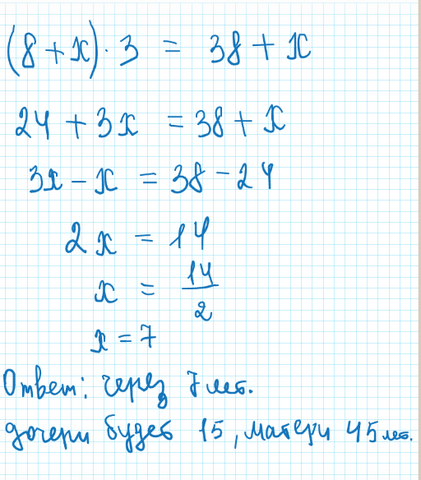 (8+x)·3 = 38+x
24+3x = 38+x
3x-x = 38-24
2x = 14
x = 14/2
x = 7
Ответ: через 7 лет.
дочери будет 15, матери 45 лет.